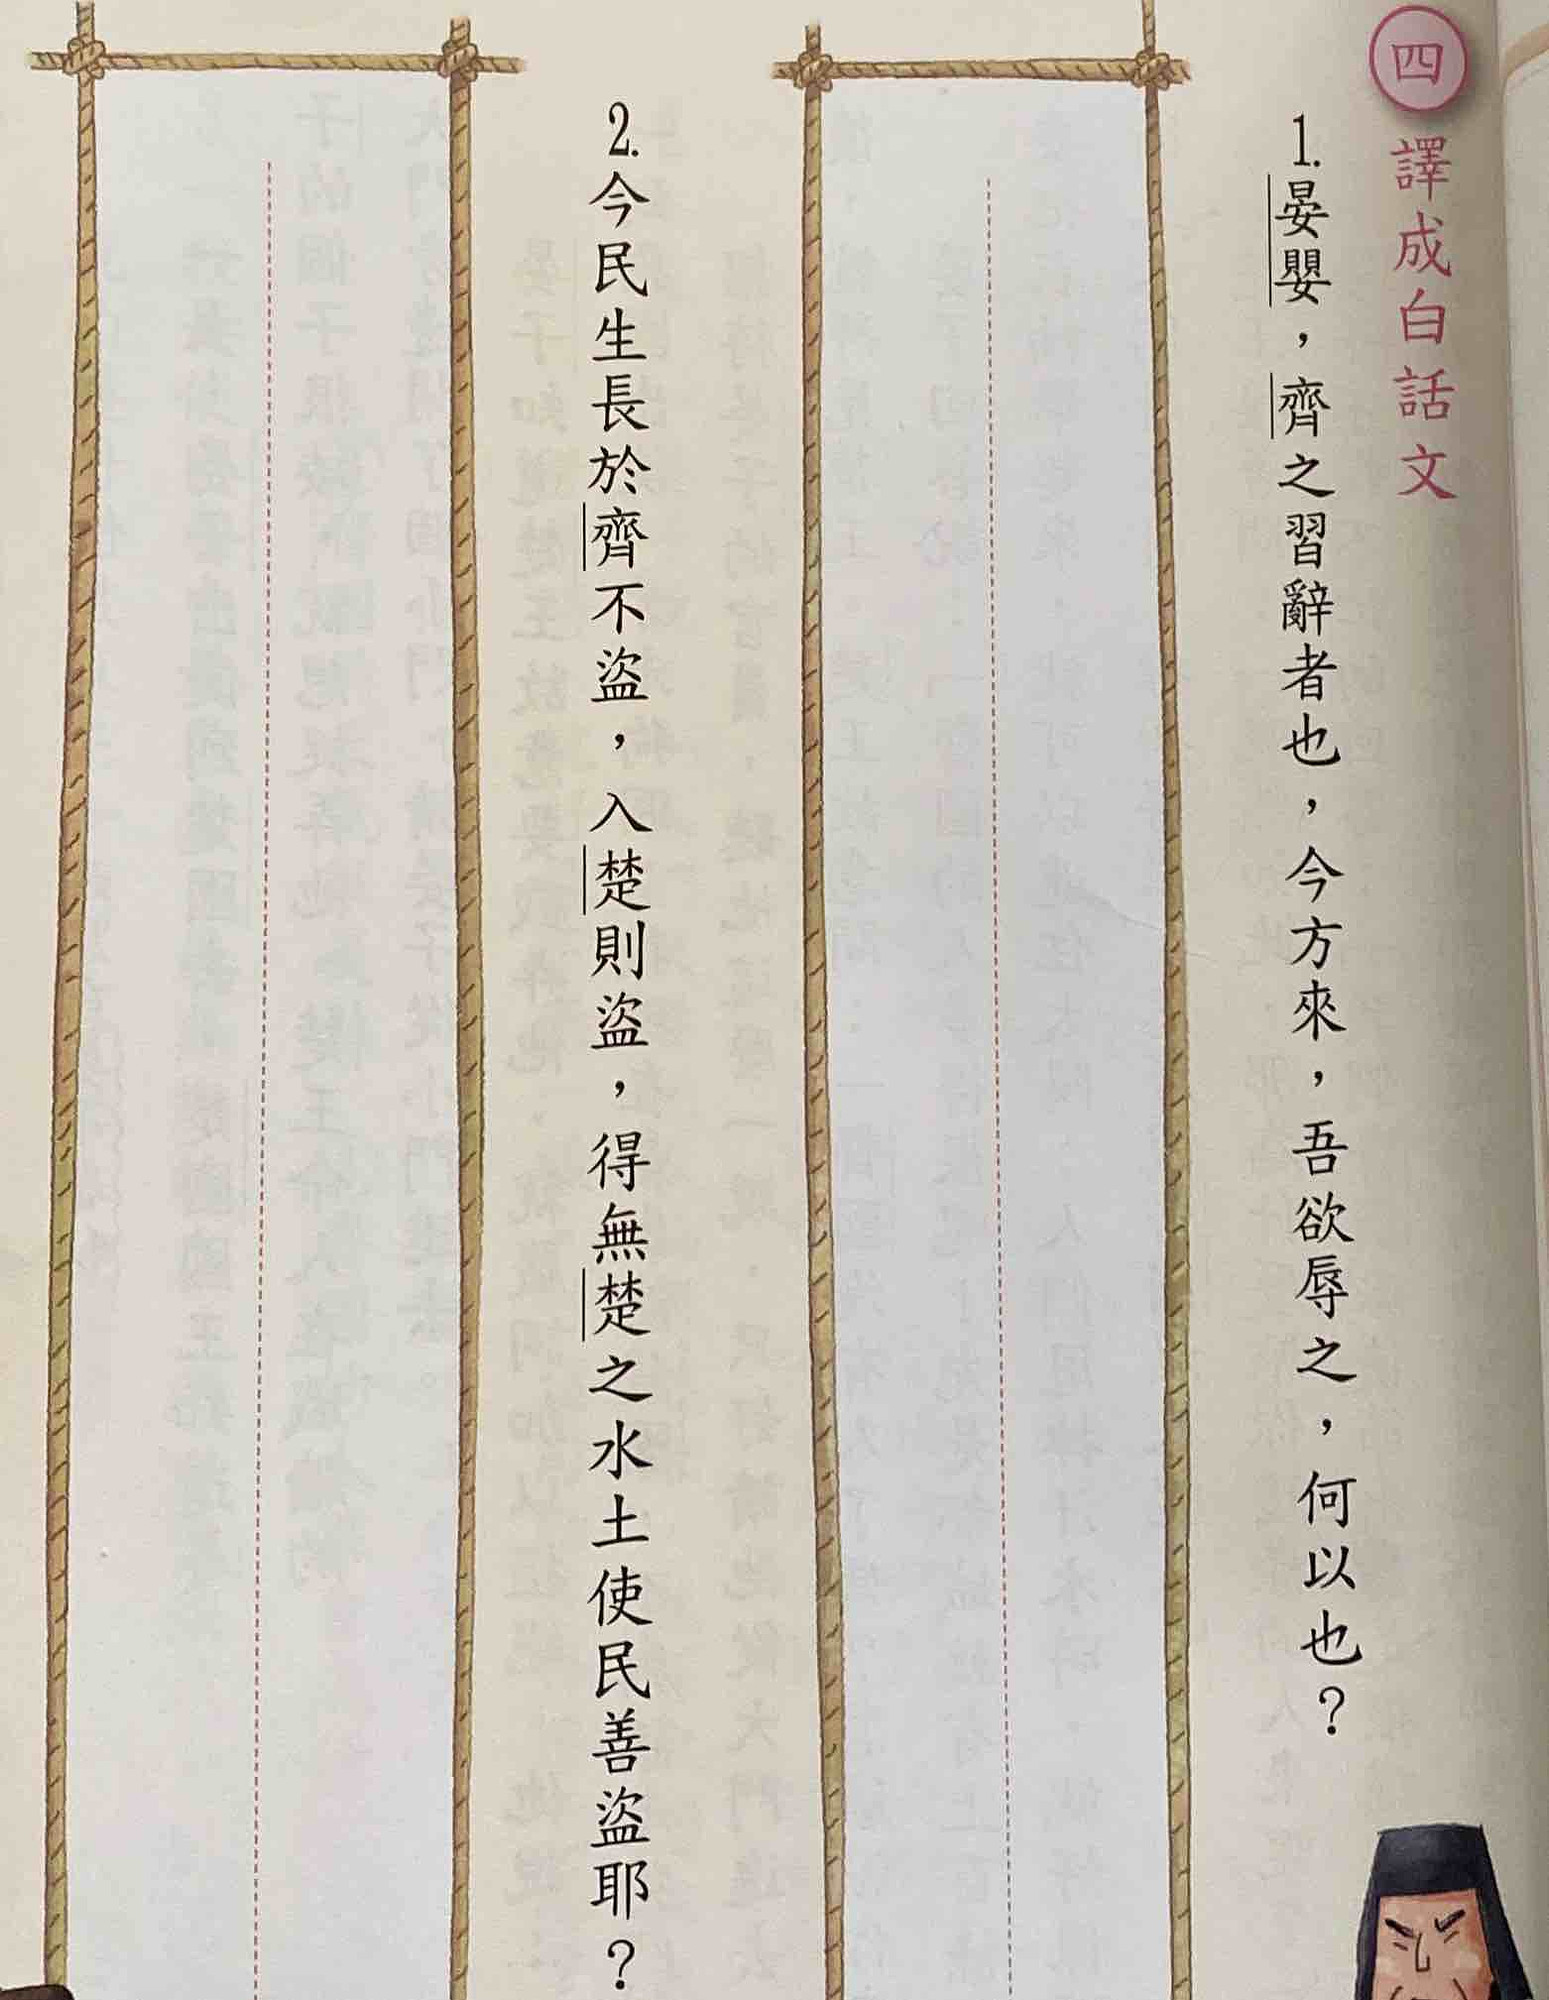 四 譯成白話文
1.晏嬰，齊之習辭者也，今方來，吾欲辱之，何以也？
2.今民生長於齊不盜，入楚則盜，得無楚之水土使民善盜耶？